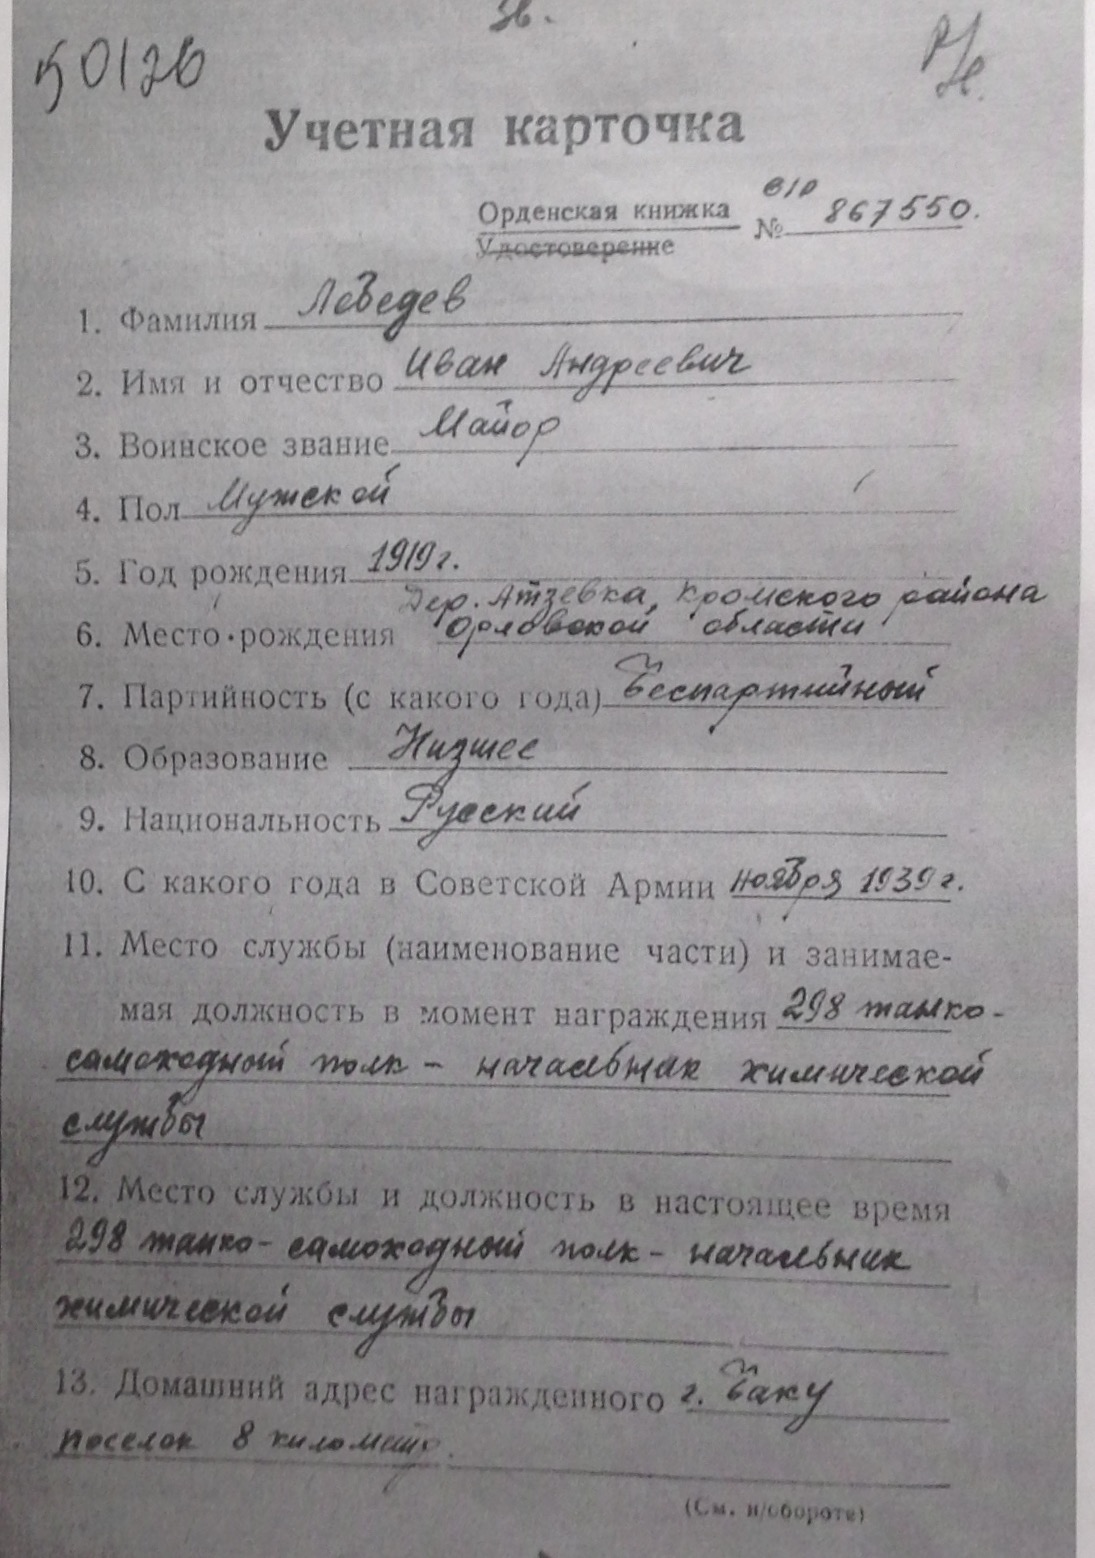 50126
Учетная карточка
Орденская книжка № б/р 867550.
Удостоверение
1. Фамилия Лебедев
2. Имя и отчество Иван Андреевич
3. Воинское звание Майор
4. Пол Мужской
5. Год рождения 1919 г.
Дер. Атзевка, Кромского района
6. Место рождения Орловской области
7. Партийность (с какого года) Беспартийный
8. Образование Низшее
9. Национальность Русский
10. С какого года в Советской Армии ноября 1939 г.
11. Место службы (наименование части) и занимае-
мая должность в момент награждения 298 танко-
самоходный полк - начальник химической
службы
12. Место службы и должность в настоящее время
298 танко-самоходный полк - начальник
химической службы
13. Домашний адрес награжденного г. Баку
поселок 8 километр.
(См. н/обороте)